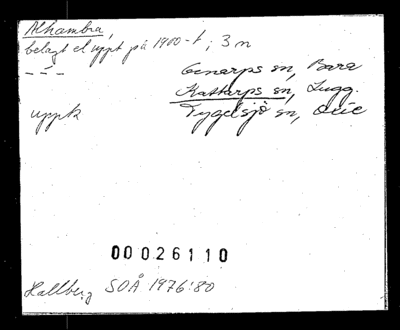 Alhambra,
belagt el uppt på 1900-t; 3 m
— " —
Genarps sn, Bara
Kattarps sn, Lugg.
uppk Tygelsjö sn, Oxie
00026110
Hallberg SOÅ 1976:80